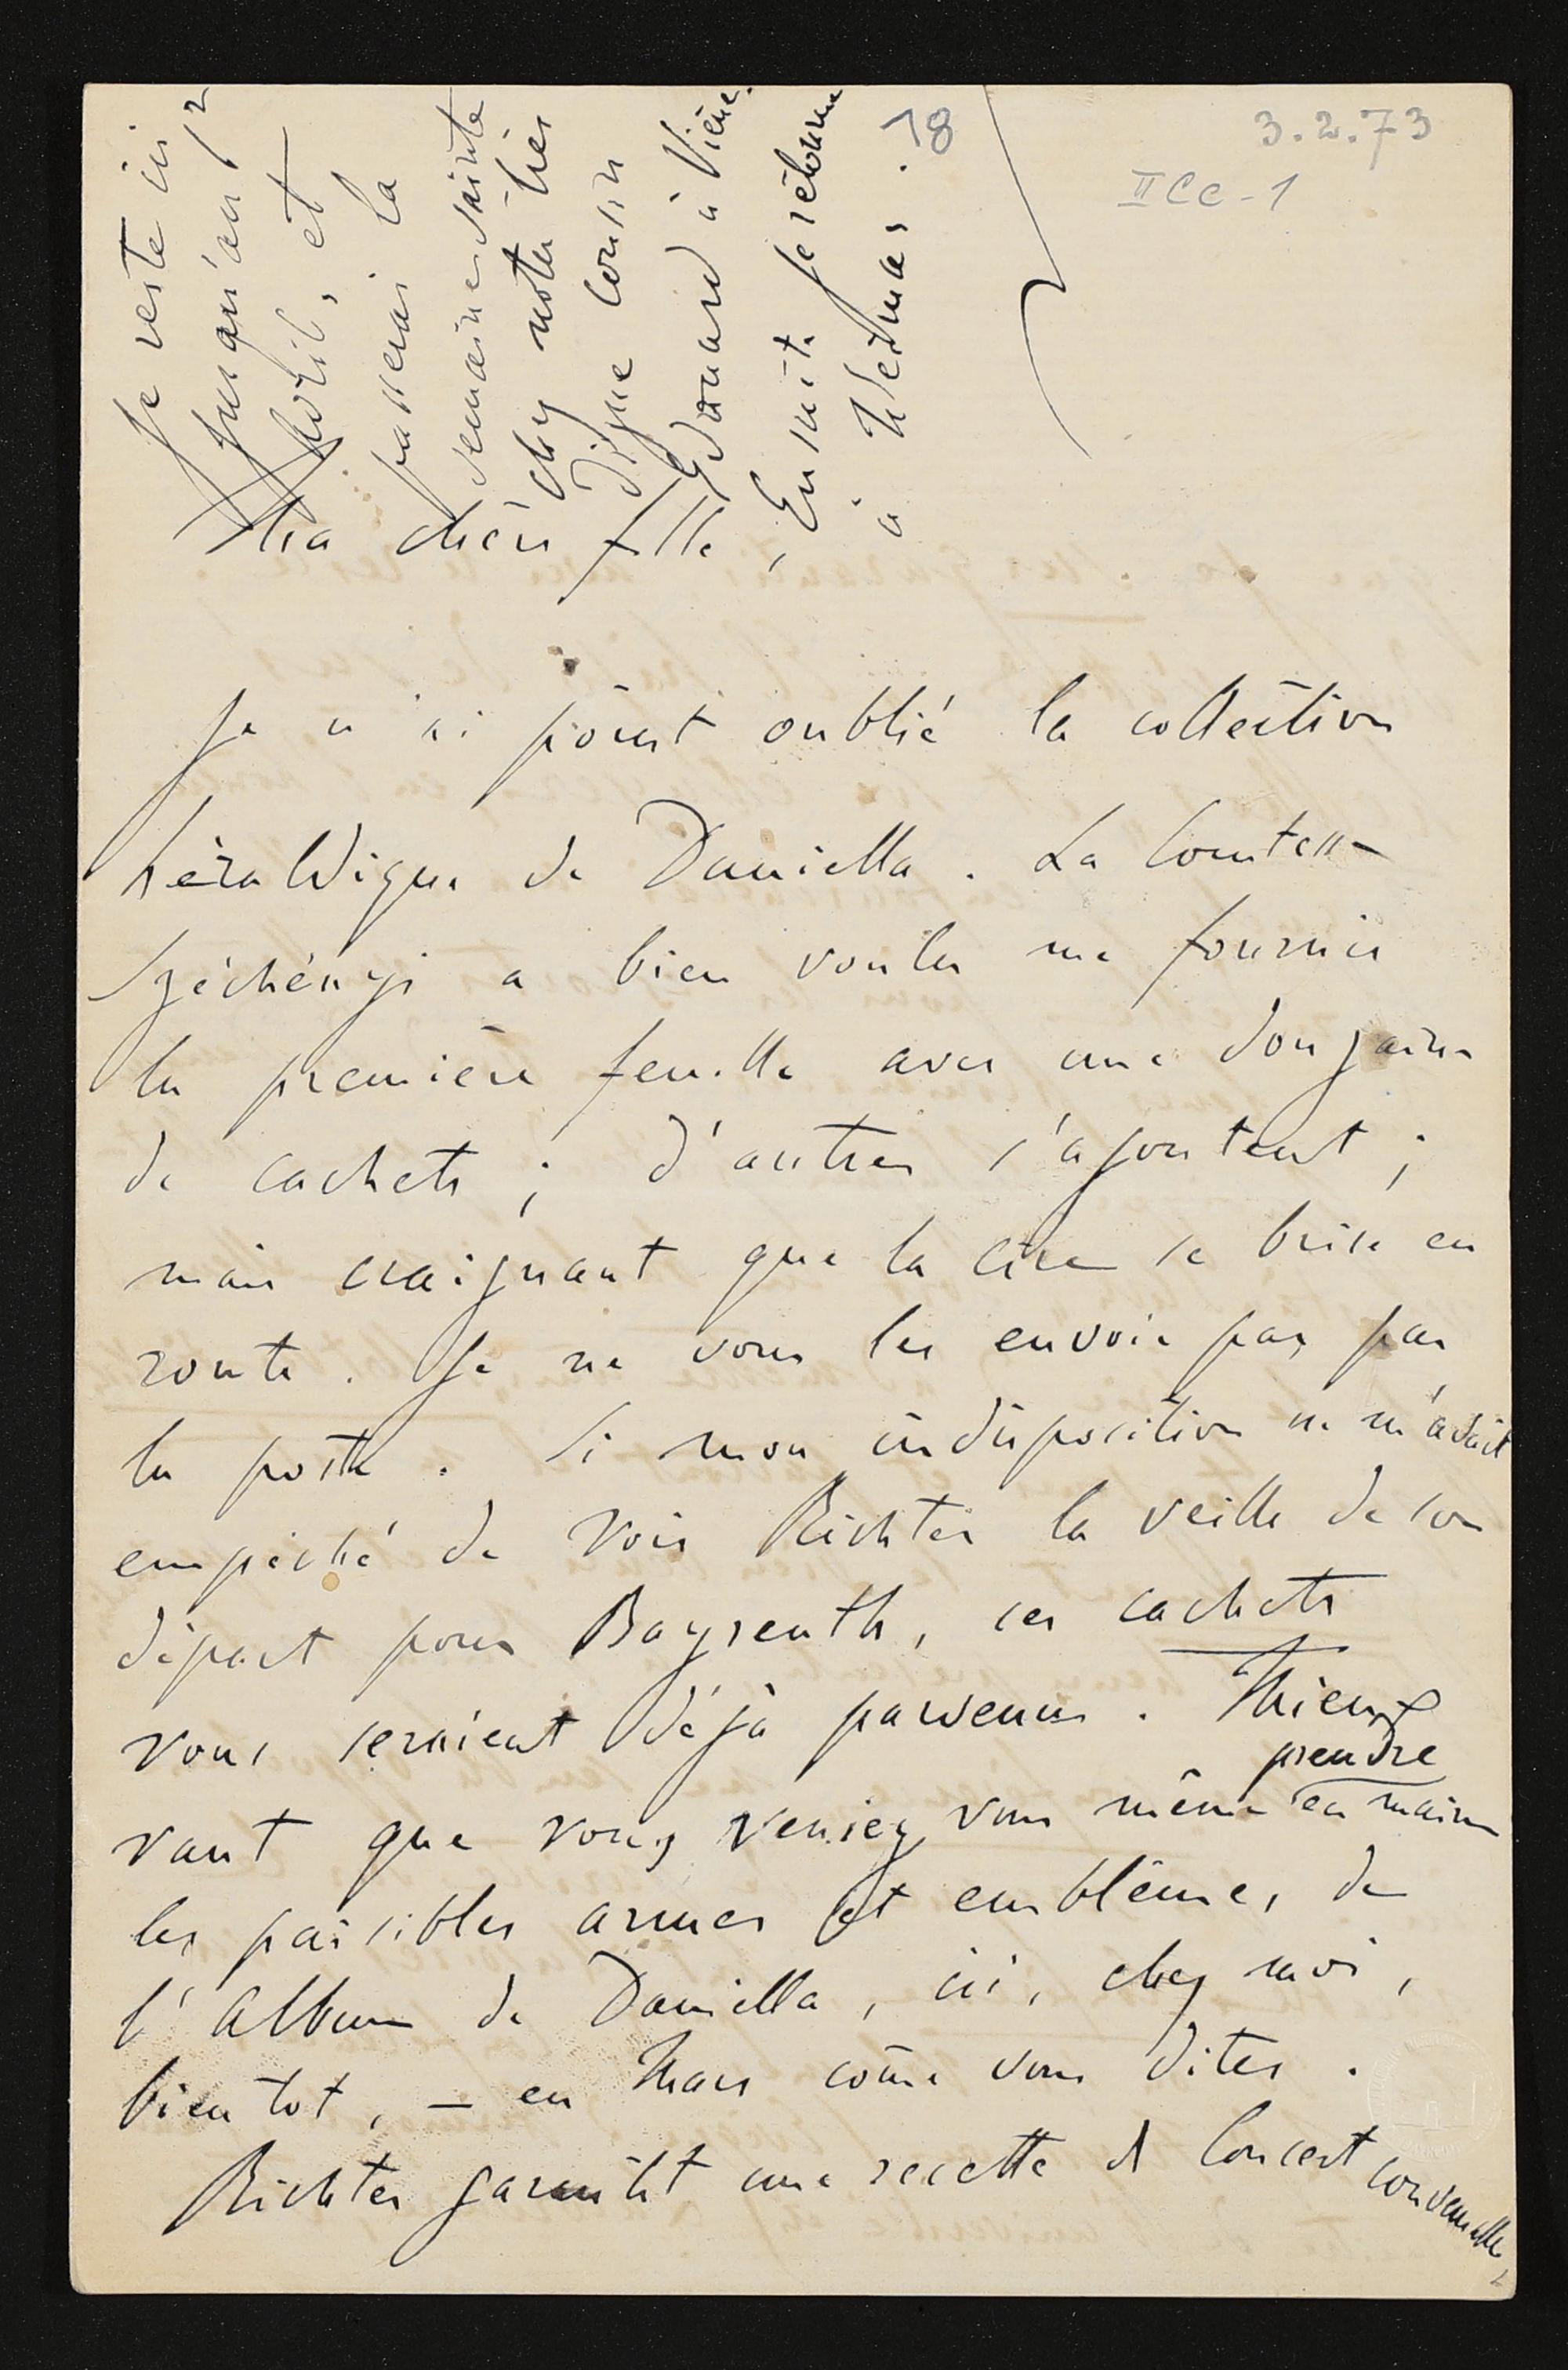 18
3.2.73
II Cc - 1
Je reste ici
jusqu'au 1er
Avril, et
passerai la
semaine sainte
chez notre très
digne cousin
Edouard à Viene.
Ensuite je retourne
à Weimar.
Ma chère fille,
Je n'ai point oublié la collection
héraldique de Daniella. La Comtesse
Széchényi a bien voulu me fournir
la première feuille avec une douzaine
de cachets ; d'autres s'ajoutent ;
mais craignant que la cire se brise en
route. Je ne vous les envoie pas par
la poste. Si mon indisposition ne m'avait
empêché de voir Richter la veille de son
départ pour Bayreuth, ces cachets
vous seraient déjà parvenus. Mieux
vaut que vous veniez vous même prendre en mains
les paisibles armes et emblèmes, de
l'Album de Daniella, ici, chez moi,
bientot, – en Mars come vous dites.
Richter garantit une recette de Concert convenable,